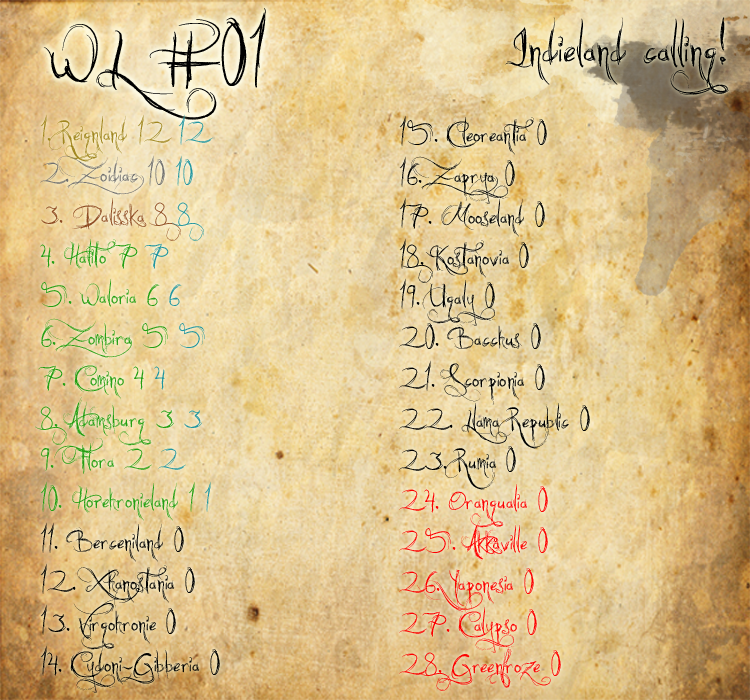 WL #01
Indieland calling!
1. Reignland 12 12
2. Zoidiac 10 10
3. Dalisska 8 8
4. Hatito 7 7
5. Waloria 6 6
6. Zombira 5 5
7. Comino 4 4
8. Adamsburg 3 3
9. Flora 2 2
10. Horetronieland 1 1
11. Berseniland 0
12. Xhanostania 0
13. Virgokronie 0
14. Cydoni-Gibberia 0
15. Cleoreantia 0
16. Zaprya 0
17. Mooseland 0
18. Kostanovia 0
19. Ugaly 0
20. Bacchus 0
21. Scorpionia 0
22. Llama Republic 0
23. Rumia 0
24. Orangualia 0
25. Akkaville 0
26. Yaponesia 0
27. Calypso 0
28. Greenfroze 0